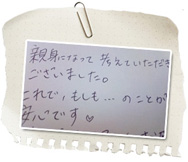 親身になって考えていただき
ございました。
これで、もしも…のことが
安心です♡